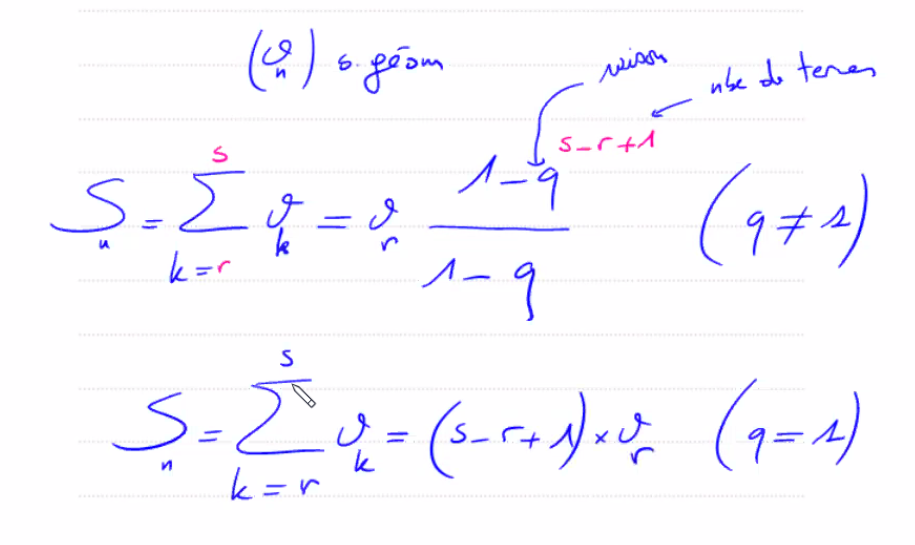 (v_n) s. géom
raison
nbe de termes
S_n = \sum_{k=r}^{s} v_k = v_r \frac{1-q^{s-r+1}}{1-q} (q ≠ 1)
S_n = \sum_{k=r}^{s} v_k = (s-r+1) × v_r (q = 1)